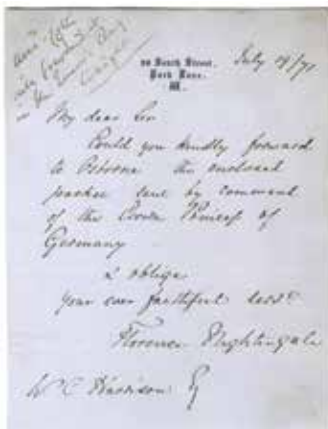 35 South Street,
Park Lane,
W.
July 19/71
My dear Sir
Could you kindly forward
to Osborne the enclosed
packet sent by command
of the Crown Princess of
Germany
& oblige
your ever faithful servt
Florence Nightingale
Esq